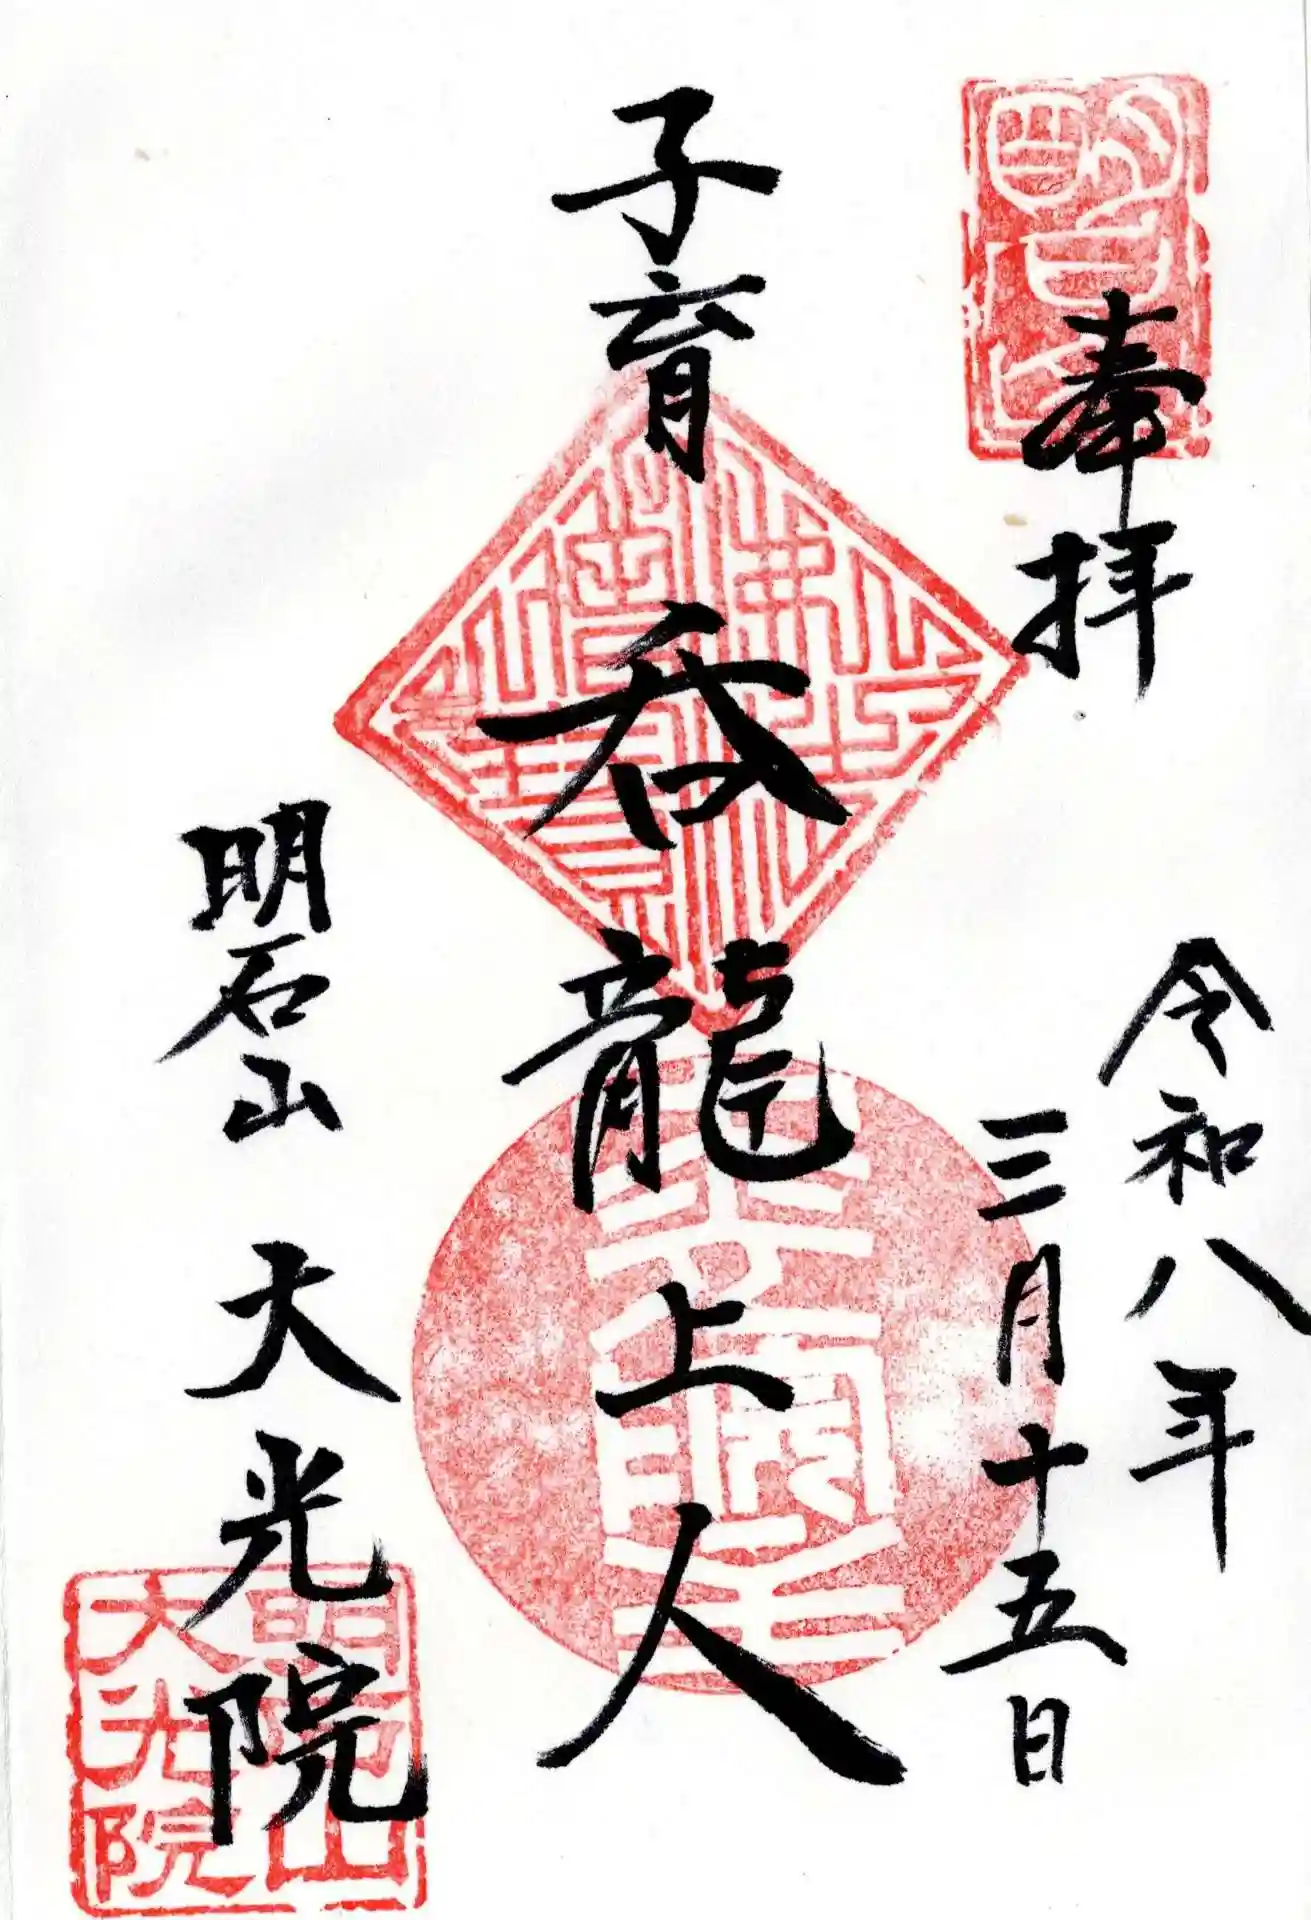 奉拝
令和八年
三月十五日
子育 呑龍上人
明石山 大光院
明石山
大光院